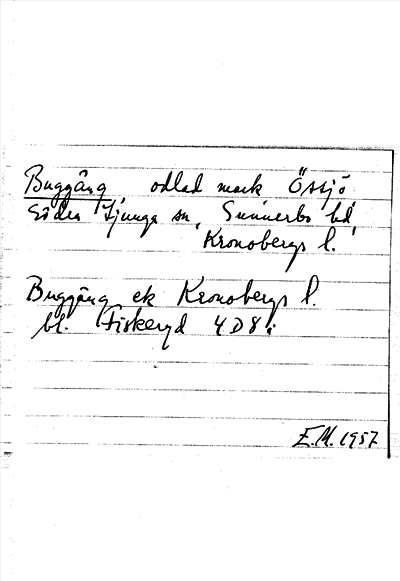 Buggäng odlad mark Össjö,
Södra Ljunga sn, Sunnerbo hd,
Kronobergs l.
Buggäng ek Kronobergs l.
bl. Fiskeryd 4D8i
E.M. 1957